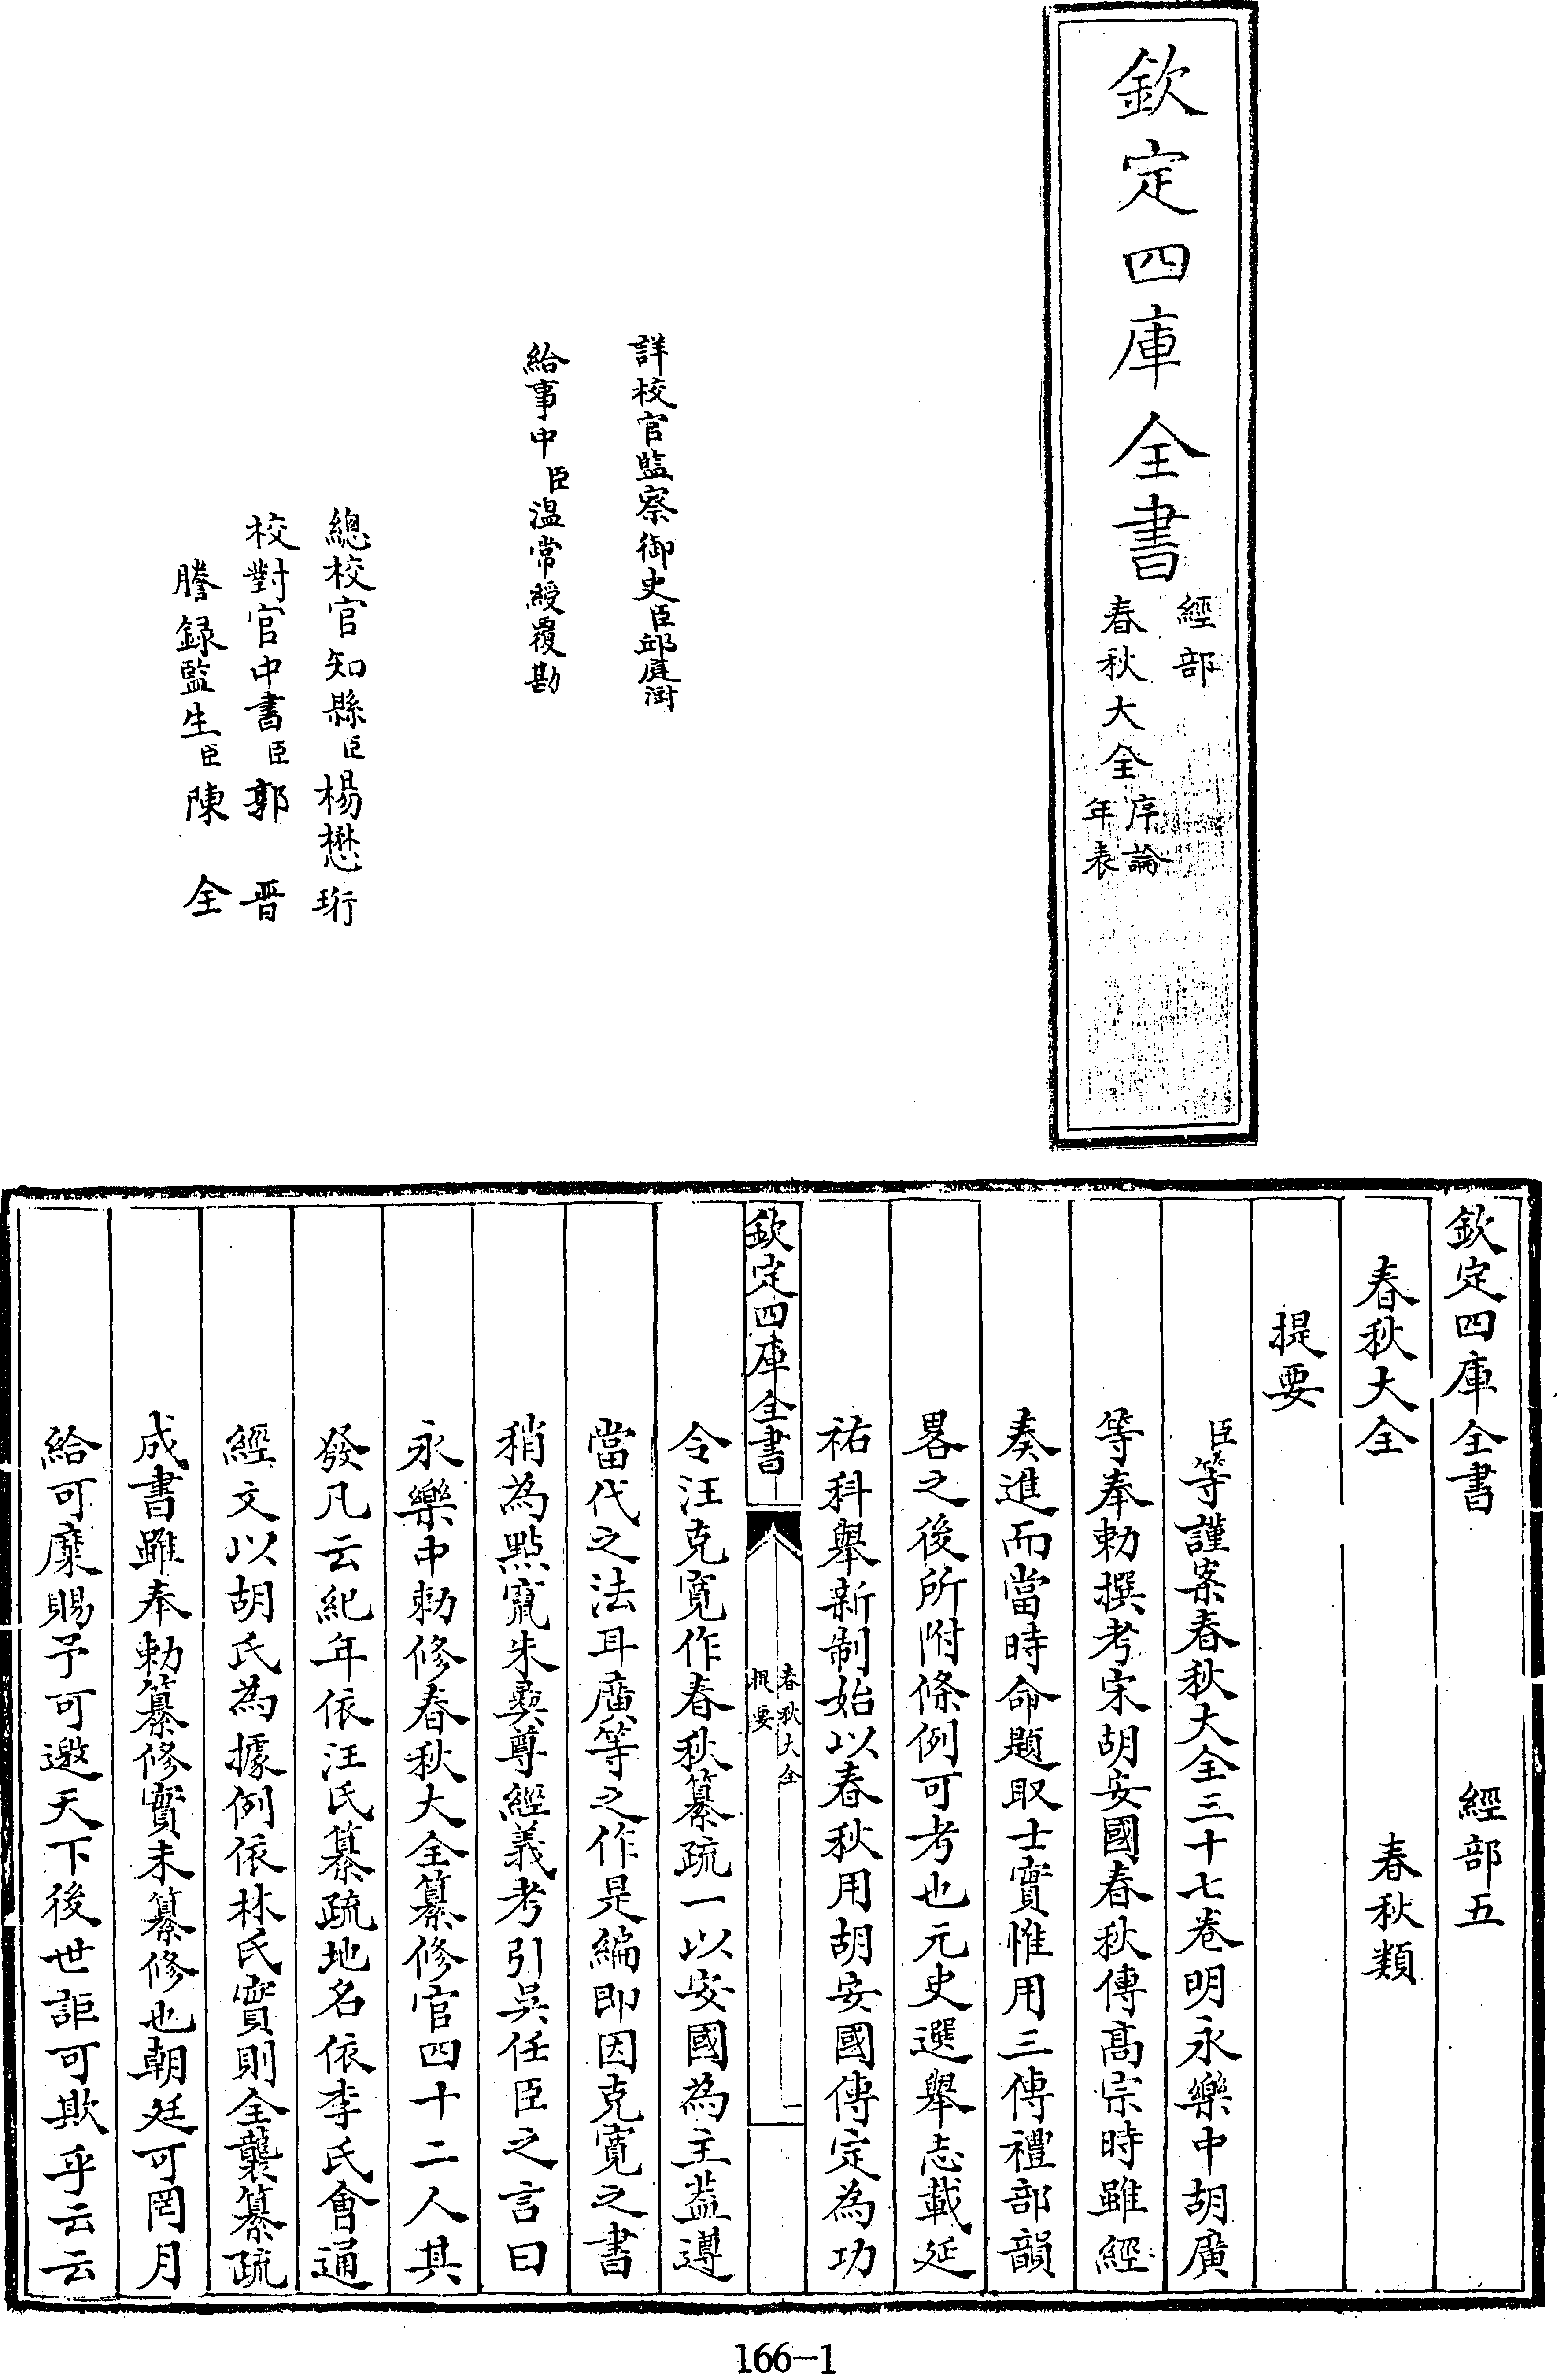 欽定四庫全書
經部
春秋大全
序論
年表
詳校官監察御史臣邱庭澍
給事中臣温常綬覆勘
總校官知縣臣楊懋珩
校對官中書臣郭晋
謄録監生臣陳全
欽定四庫全書 經部五
春秋大全 春秋類
提要
臣等謹案春秋大全三十七卷明永樂中胡廣
等奉勅撰考宋胡安國春秋傳髙宗時雖經
奏進而當時命題取士實惟用三傳禮部韻
畧之後所附條例可考也元史選舉志載延
祐科舉新制始以春秋用胡安國傳定為功
欽定四庫全書
春秋大全
提要
一
令汪克寛作春秋纂疏一以安國為主葢遵
當代之法耳廣等之作是編即因克寛之書
稍為點竄朱彝尊經義考引吳任臣之言曰
永樂中勅修春秋大全纂修官四十二人其
發凡云紀年依汪氏纂疏地名依李氏會通
經文以胡氏為據例依林氏實則全襲纂疏
成書雖奉勅纂修實未纂修也朝廷可罔月
給可糜賜予可邀天下後世詎可欺乎云云
166-1